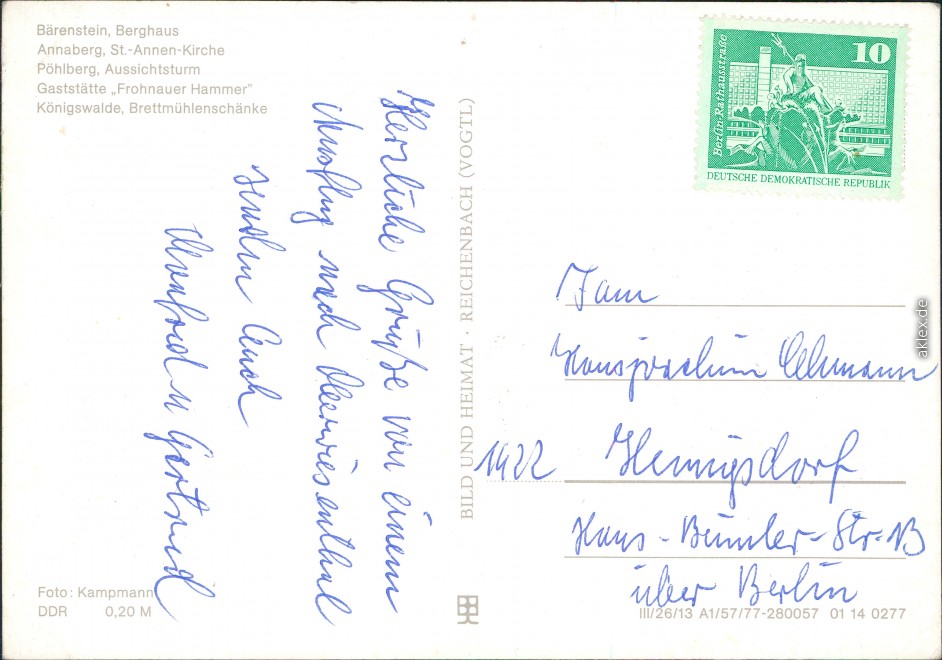 Bärenstein, Berghaus
Annaberg, St.-Annen-Kirche
Pöhlberg, Aussichtsturm
Gaststätte „Frohnauer Hammer"
Königswalde, Brettmühlenschänke
Herzliche Grüße von einem
Ausflug nach Oberwiesenthal
senden Euch
Manfred u Gertrud
Foto: Kampmann
DDR 0,20 M
BILD UND HEIMAT · REICHENBACH (VOGTL)
10
Berlin-Rathausstraße
DEUTSCHE DEMOKRATISCHE REPUBLIK
Fam
Hansjoachim
1422 Hennigsdorf
Hans-Beimler-Str.
über Berlin
III/26/13 A1/57/77-280057 01 14 0277
aklex.de